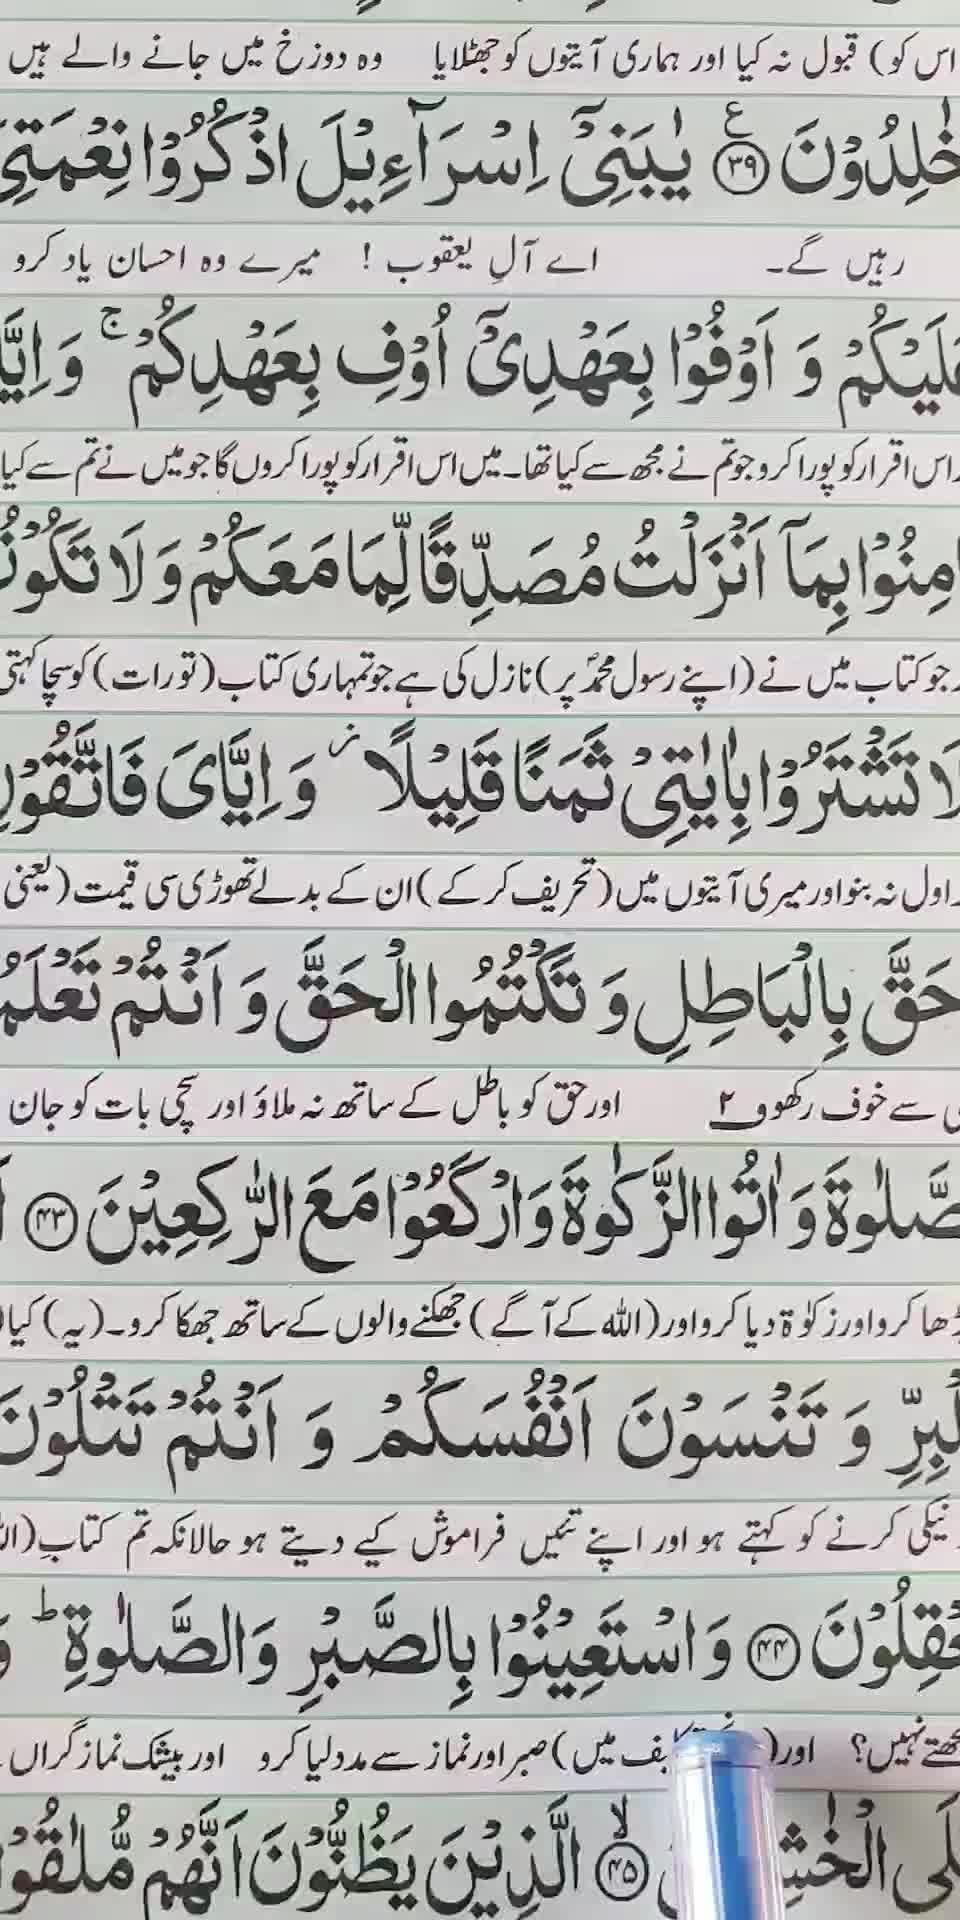 اس کو) قبول نہ کیا اور ہماری آیتوں کو جھٹلایا وہ دوزخ میں جانے والے ہیں
خٰلِدُوْنَ ﴿۳۹﴾ ع یٰبَنِیْۤ اِسْرَآءِیْلَ اذْكُرُوْا نِعْمَتِیَ
رہیں گے۔ اے آلِ یعقوب ! میرے وہ احسان یاد کرو
عَلَیْكُمْ وَ اَوْفُوْا بِعَهْدِیْۤ اُوْفِ بِعَهْدِكُمْ ۚ وَ اِیَّا
اس اقرار کو پورا کرو جو تم نے مجھ سے کیا تھا۔ میں اس اقرار کو پورا کروں گا جو میں نے تم سے کیا
اٰمِنُوْا بِمَاۤ اَنْزَلْتُ مُصَدِّقًا لِّمَا مَعَكُمْ وَ لَا تَكُوْنُ
جو کتاب میں نے (اپنے رسول محمدؐ پر) نازل کی ہے جو تمہاری کتاب (تورات) کو سچا کہتی
لَا تَشْتَرُوْا بِاٰیٰتِیْ ثَمَنًا قَلِیْلًا ز وَ اِیَّایَ فَاتَّقُوْنِ
اول نہ بنو اور میری آیتوں میں (تحریف کر کے) ان کے بدلے تھوڑی سی قیمت (یعنی
حَقَّ بِالْبَاطِلِ وَ تَكْتُمُوا الْحَقَّ وَ اَنْتُمْ تَعْلَمُ
سے خوف رکھو ف۲ اور حق کو باطل کے ساتھ نہ ملاؤ اور سچی بات کو جان
صَّلٰوةَ وَ اٰتُوا الزَّكٰوةَ وَ ارْكَعُوْا مَعَ الرّٰكِعِیْنَ ﴿۴۳﴾
پڑھا کرو اور زکوٰۃ دیا کرو اور (اللہ کے آگے) جھکنے والوں کے ساتھ جھکا کرو۔ (یہ) کیا
لْبِرِّ وَ تَنْسَوْنَ اَنْفُسَكُمْ وَ اَنْتُمْ تَتْلُوْنَ
نیکی کرنے کو کہتے ہو اور اپنے تئیں فراموش کیے دیتے ہو حالانکہ تم کتابِ (ال
عْقِلُوْنَ ﴿۴۴﴾ وَ اسْتَعِیْنُوْا بِالصَّبْرِ وَ الصَّلٰوةِ ؕ وَ
نہیں؟ اور ( میں) صبر اور نماز سے مدد لیا کرو اور بیشک نماز گراں
لَی الْخٰشِ ﴿۴۵﴾ۙ الَّذِیْنَ یَظُنُّوْنَ اَنَّهُمْ مُّلٰقُوْا